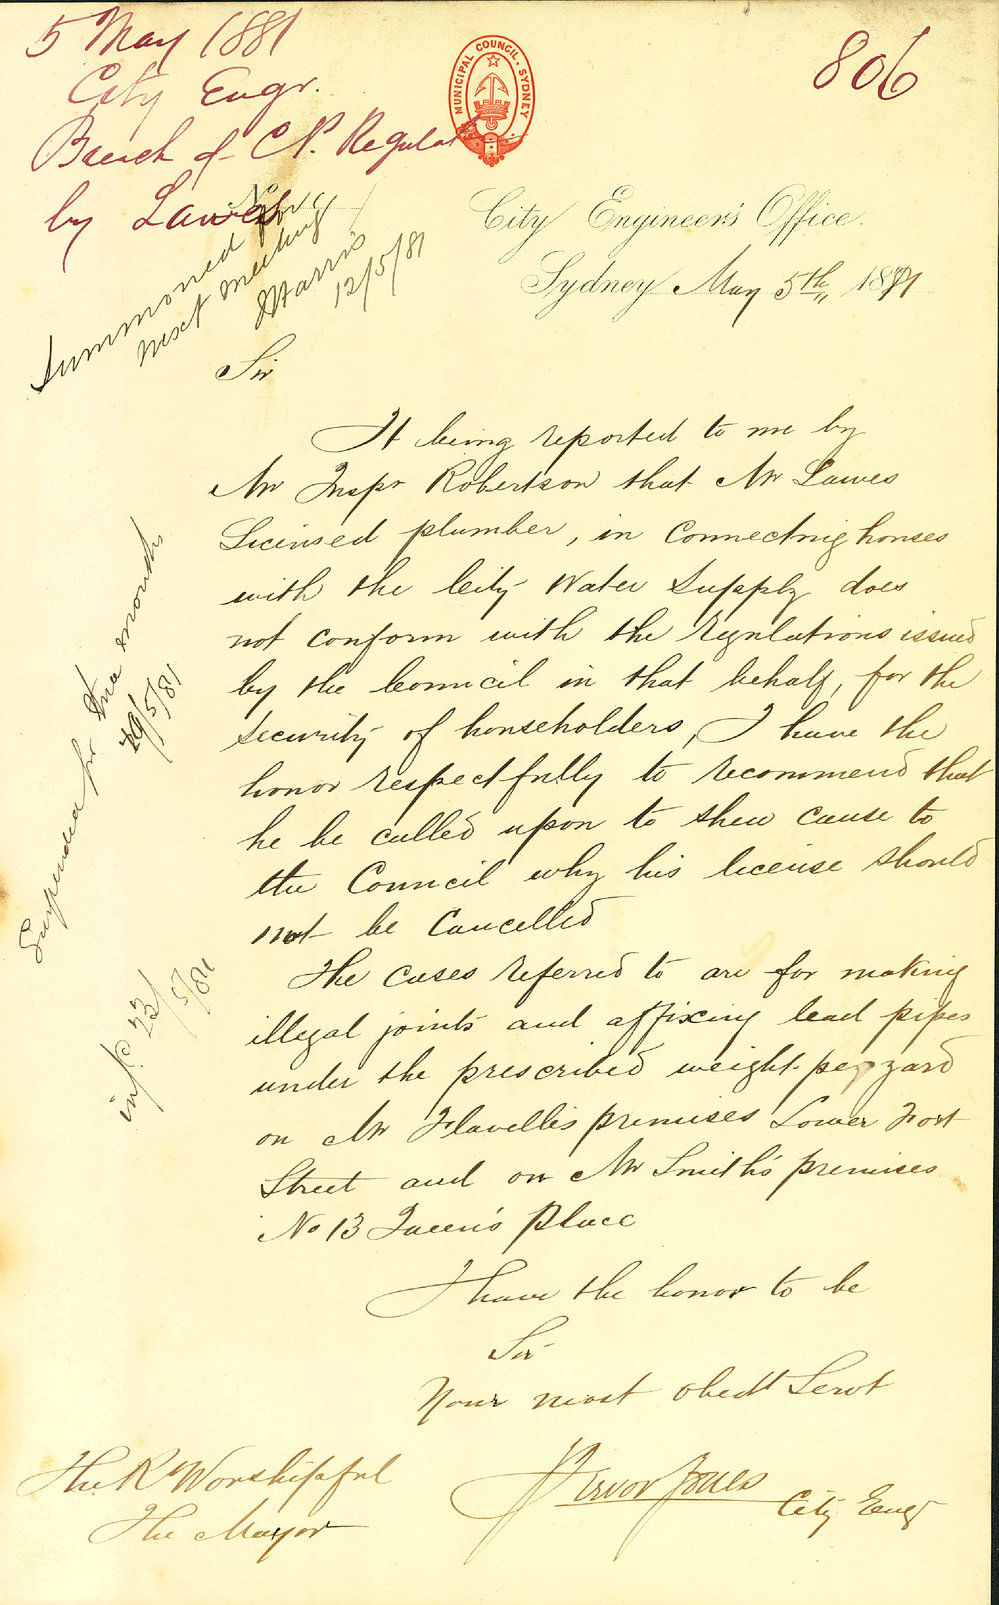 5 May 1881
City Engr.
Breach of C.P. Regulat
by Lawes
806
MUNICIPAL COUNCIL. SYDNEY.
City Engineer's Office.
Sydney May 5th 1881
Summoned for
next meeting
Harris
12/5/81
Sir
It being reported to me by
Mr Inspr Robertson that Mr Lawes
Licensed plumber, in connecting houses
with the City Water Supply does
not conform with the regulations issued
by the Council in that behalf, for the
security of householders, I have the
honor respectfully to recommend that
he be called upon to shew cause to
the Council why his license should
not be Cancelled
The cases referred to are for making
illegal joints and affixing lead pipes
under the prescribed weight per yard
on Mr Flavelle's premises Lower Fort
Street and on Mr Smith's premises
No 13 Queen's Place
I have the honor to be
Sir
Your most obedt Servt
Trevor Jones
City Engr
The Rt Worshipful
The Mayor
Suspended for three months
/5/81
inf. 23/5/81